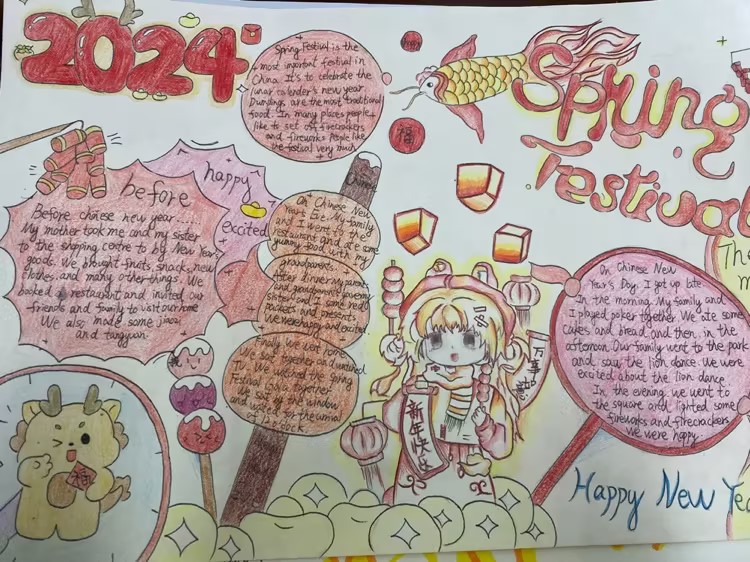 2024
Spring Festival is the
most important festival in
China. It's to celebrate the
lunar calender's new year.
Dumplings are the most traditional
food. In many places people
like to set off firecrackers
and fireworks. People like
the festival very much.
福
Spring
Festival
before
Before chinese new year......
My mother took me and my sister
to the shopping centre to by New Year
goods. We bought fruits, snack, new
clothes, and many other things. We
booked a restaurant and invited our
friends and family to visit our home
We also made some jiaozi
and tangyuan.
happy
excited
On Chinese New
Year's Eve. My family
and I went to a
restaurant and ate some
yummy food with my
grandparents.
After dinner my parents
and grandparents gave my
sister and I some red
packets and present.
We were happy and excited.
Finally We went home.
We sat together and watched
TV. We watched the Spring
Festival
set off the window
and waited for the arrival
of 12 o'clock.
On Chinese New
Year's Day, I got up late
In the morning. My family and
I played poker together. We ate some
cakes and bread and then, in the
afternoon. Our family went to the park
and saw the lion dance. We were
excited about the lion dance.
In the evening, we went to
the square and lighted some
fireworks and firecrackers
We were happy.
万事如意
新年快乐
福
Happy New Yea